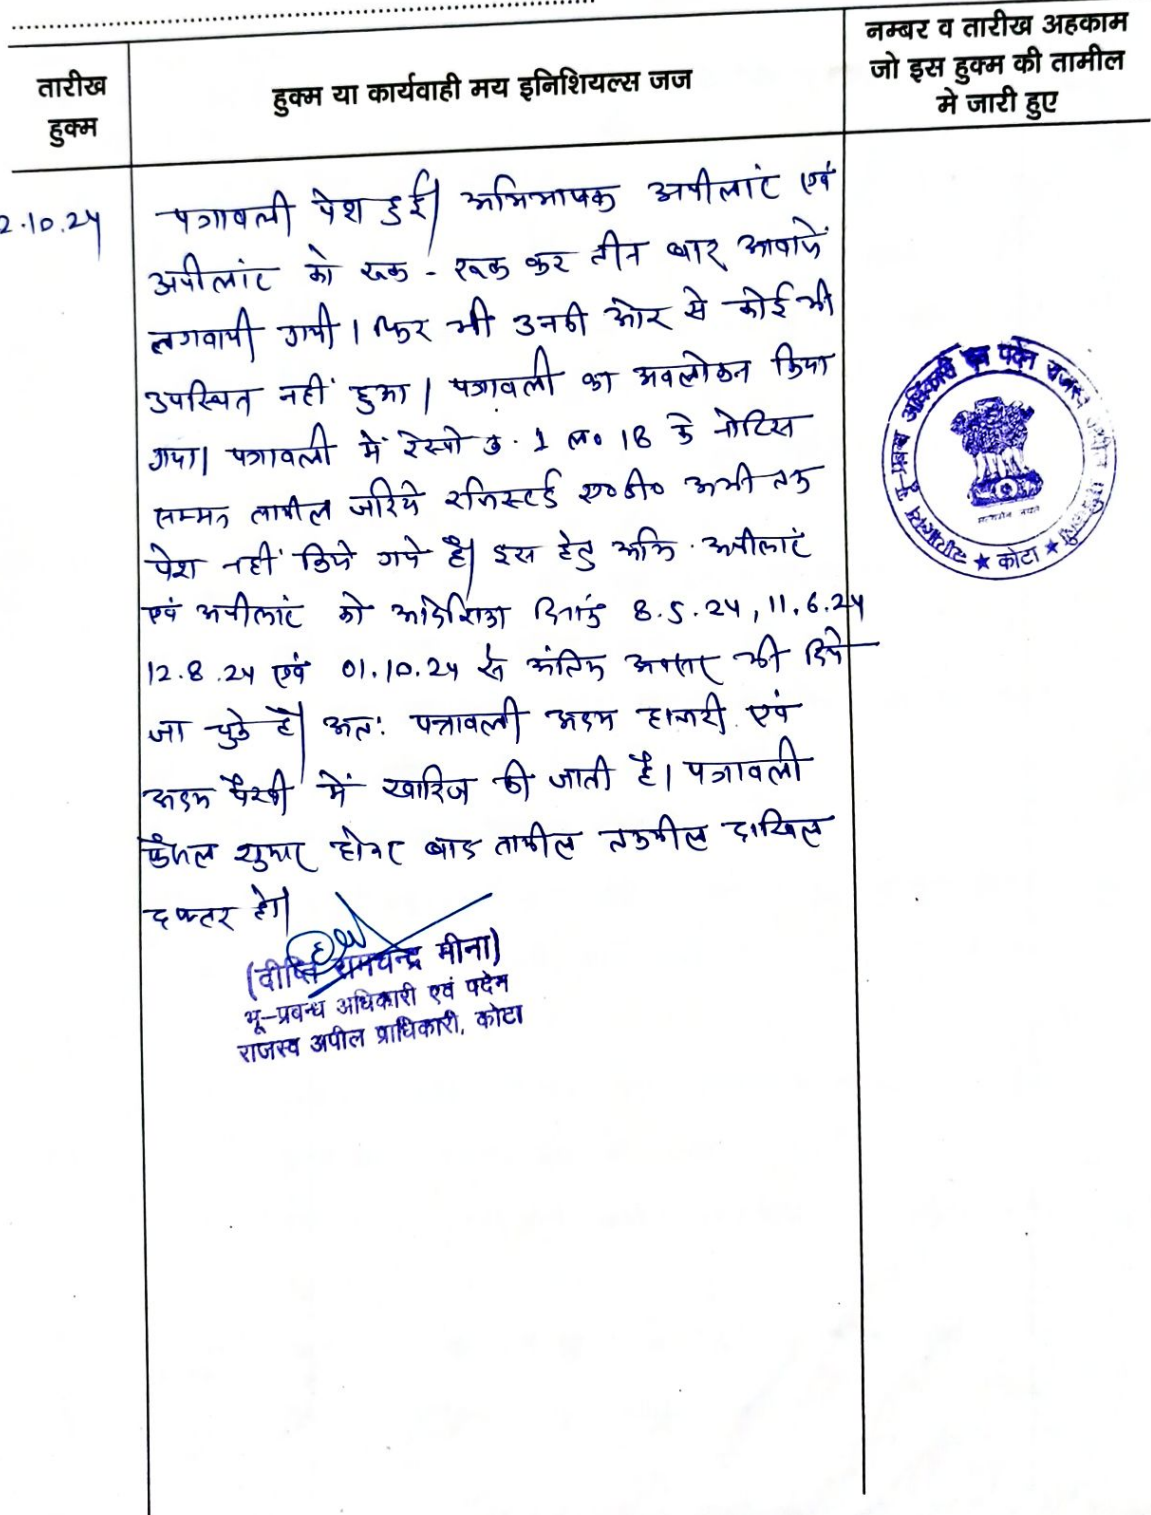 तारीख
हुक्म
हुक्म या कार्यवाही मय इनिशियल्स जज
नम्बर व तारीख अहकाम
जो इस हुक्म की तामील
मे जारी हुए
2.10.24
पत्रावली पेश हुई। अभिभाषक अपीलांट एवं
अपीलांट को रूक - रूक कर तीन बार आवाजें
लगवायी गयी। फिर भी उनकी ओर से कोई भी
उपस्थित नहीं हुआ। पत्रावली का अवलोकन किया
गया। पत्रावली में रेस्पो क्र. 1 ल० 18 के नोटिस
सम्मन तामील जरिये रजिस्टर्ड ए०डी० अभी तक
पेश नहीं किये गये है। इस हेतु अभि. अपीलांट
एवं अपीलांट को आदेशिका दिनांक 8.5.24, 11.6.24
12.8.24 एवं 01.10.24 को अंतिम अवसर भी दिये
जा चुके है। अत: पत्रावली अदम हाजरी एवं
अदम पैरवी में खारिज की जाती है। पत्रावली
फैसल शुमार होकर बाद तामील तकमील दाखिल
दफ्तर हो।
(दीप्ति रामचन्द्र मीना)
भू-प्रबन्ध अधिकारी एवं पदेन
राजस्व अपील प्राधिकारी, कोटा
कार्यालय भू-प्रबन्ध अधिकारी एवं पदेन राजस्व अपील प्राधिकारी
★ कोटा ★
सत्यमेव जयते